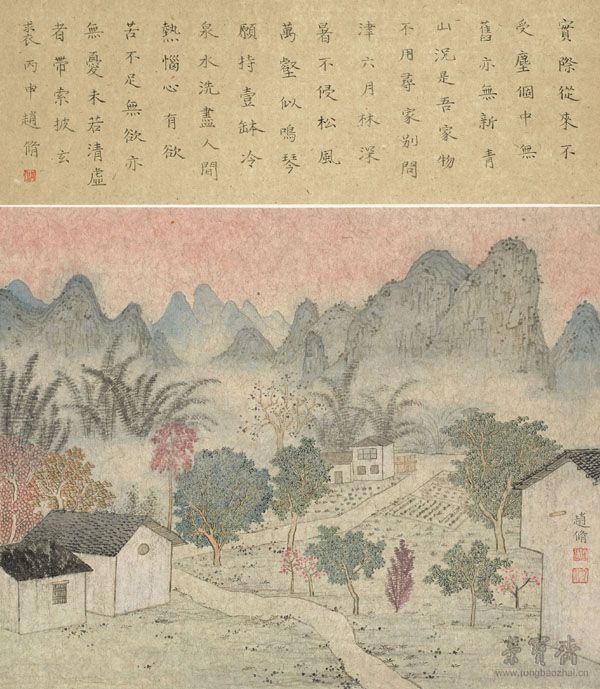 實際從來不
受塵個中無
舊亦無新青
山況是吾家物
不用尋家別問
津六月林深
暑不侵松風
萬壑似鳴琴
願持壹缽冷
泉水洗盡人間
熱惱心有欲
苦不足無欲亦
無憂未若清虛
者帶索披玄
裘丙申趙脩
趙脩
榮寶齋
www.rongbaozhai.cn